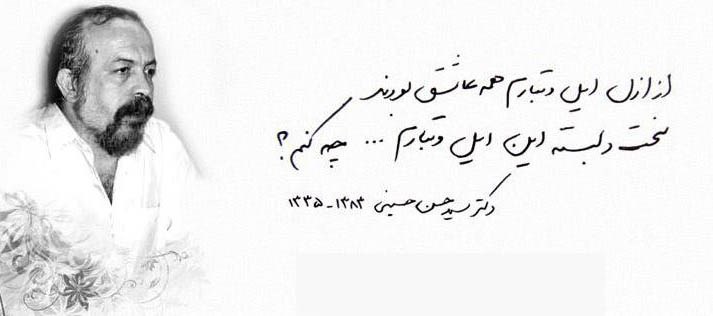 از ازل ایل و تبارم همه عاشق بودند
سخت دلبسته این ایل و تبارم ... چه کنم؟
دکتر سید حسن حسینی ۱۳۸۳-۱۳۳۵